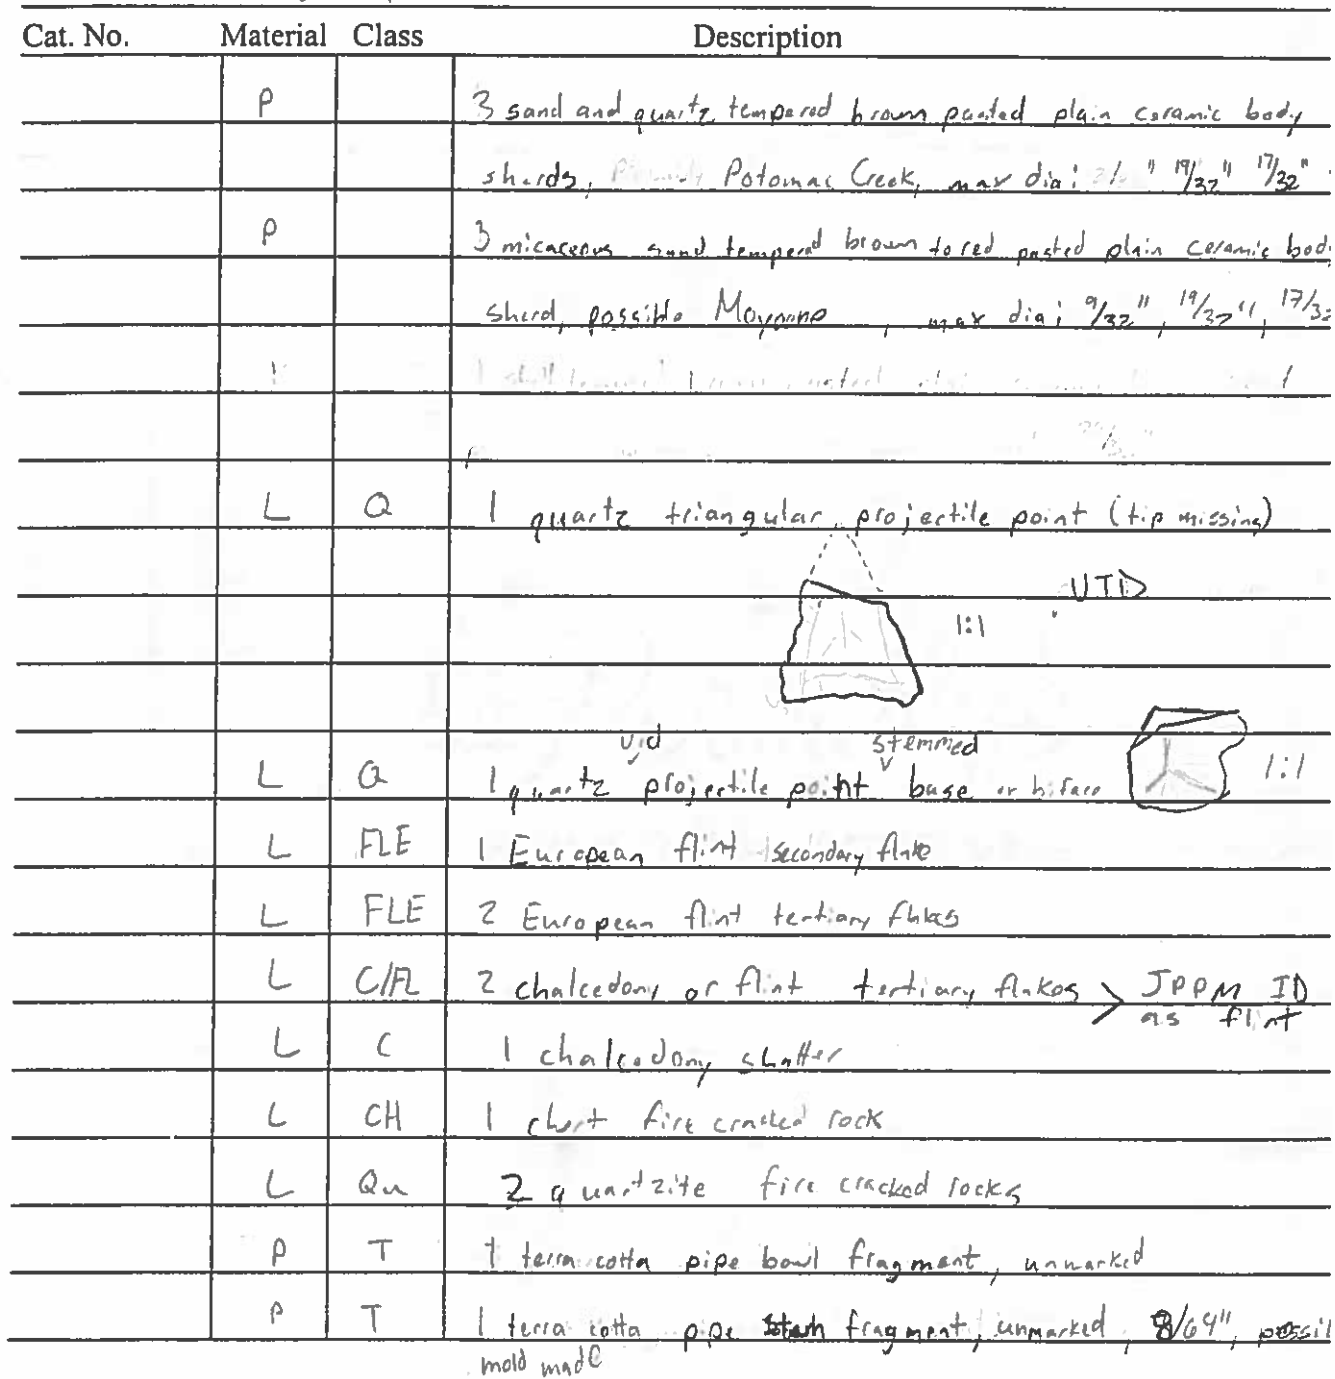 Cat. No. Material Class Description
P 3 sand and quartz tempered brown pasted plain ceramic body
sherds, Potomac Creek, max dia: 19/32" 17/32"
P 3 micaceous sand tempered brown to red pasted plain ceramic body
sherd, possible Moyaone, max dia: 9/32", 19/32", 17/32
L Q 1 quartz triangular projectile point (tip missing)
UTD
1:1
uid stemmed
L Q 1 quartz projectile point base or biface 1:1
L FLE 1 European flint secondary flake
L FLE 2 European flint tertiary flakes
L C/FL 2 chalcedony or flint tertiary flakes > JPPM ID
as flint
L C 1 chalcedony shatter
L CH 1 chert fire cracked rock
L Qu 2 quartzite fire cracked rocks
P T 1 terra cotta pipe bowl fragment, unmarked
P T 1 terra cotta pipe stem fragment, unmarked, 8/64", possi
mold made